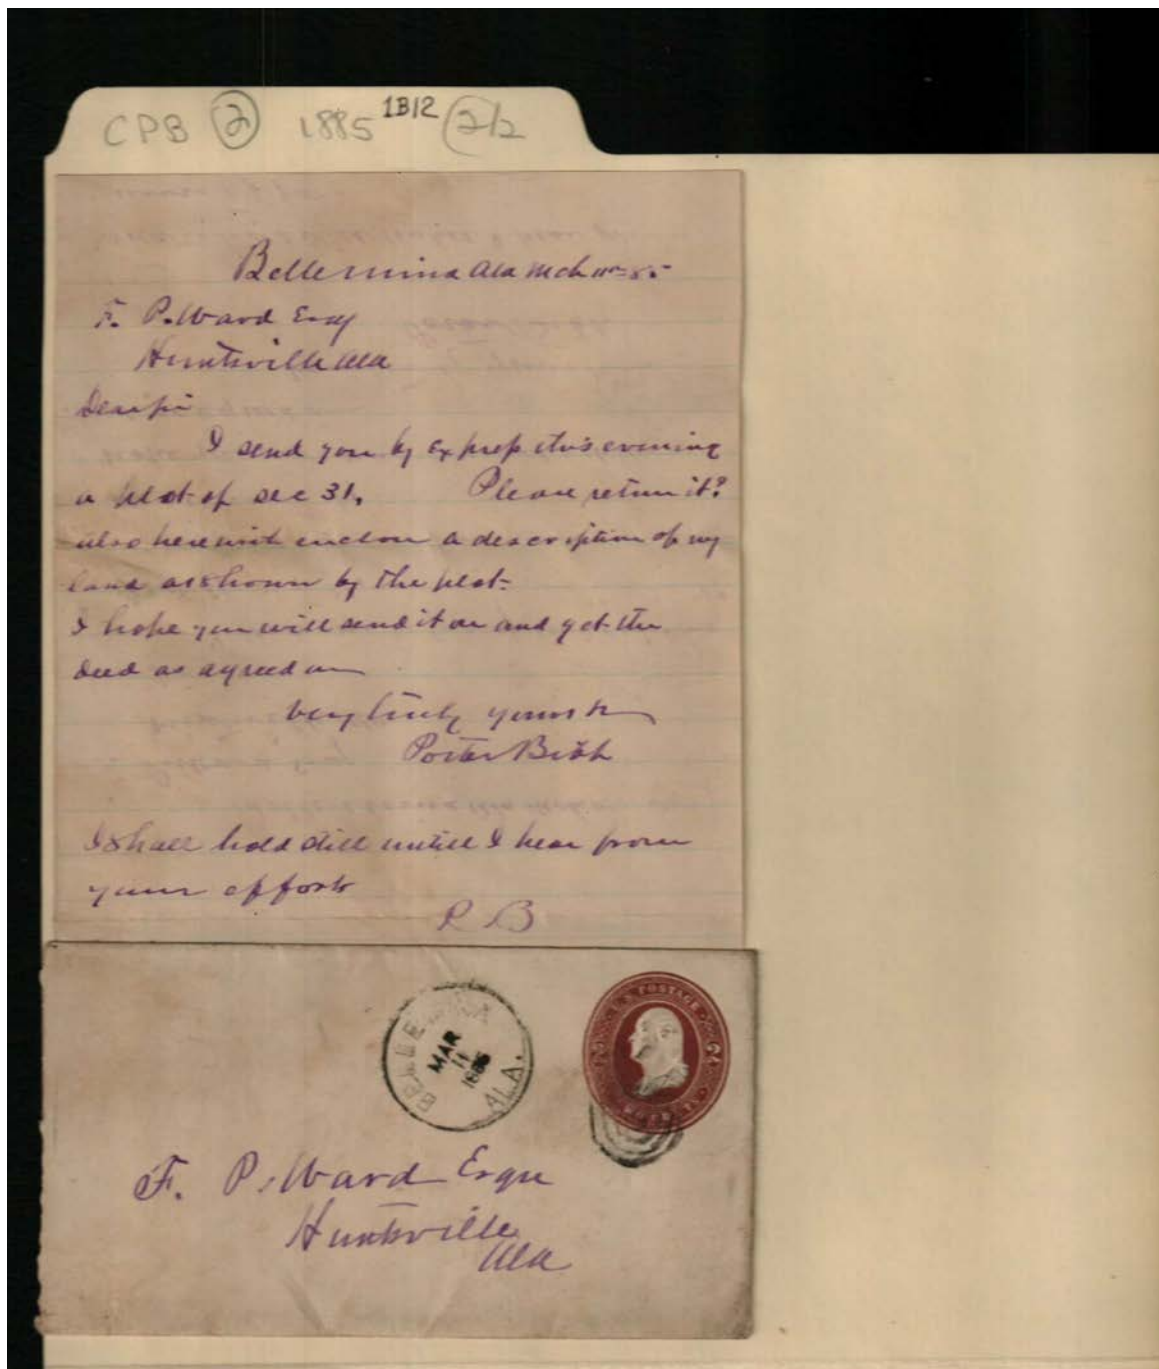 CPB 2 1885 1B12 2/2
Bellemina Ala Mch 11th 85
F. P. Ward Esq
Huntsville Ala
Dear Sir
I send you by Express this evening
a plot of sec 31. Please return it?
also herewith enclose a description of my
land as shown by the plot.
I hope you will send it on and get the
deed as agreed on
Very truly yours
Porter Bibb
I shall hold still untill I hear from
your efforts
P B
BELLE MINA
MAR
11
1885
ALA.
U.S. POSTAGE
TWO CENTS
F. P. Ward Esqu
Huntsville
Ala